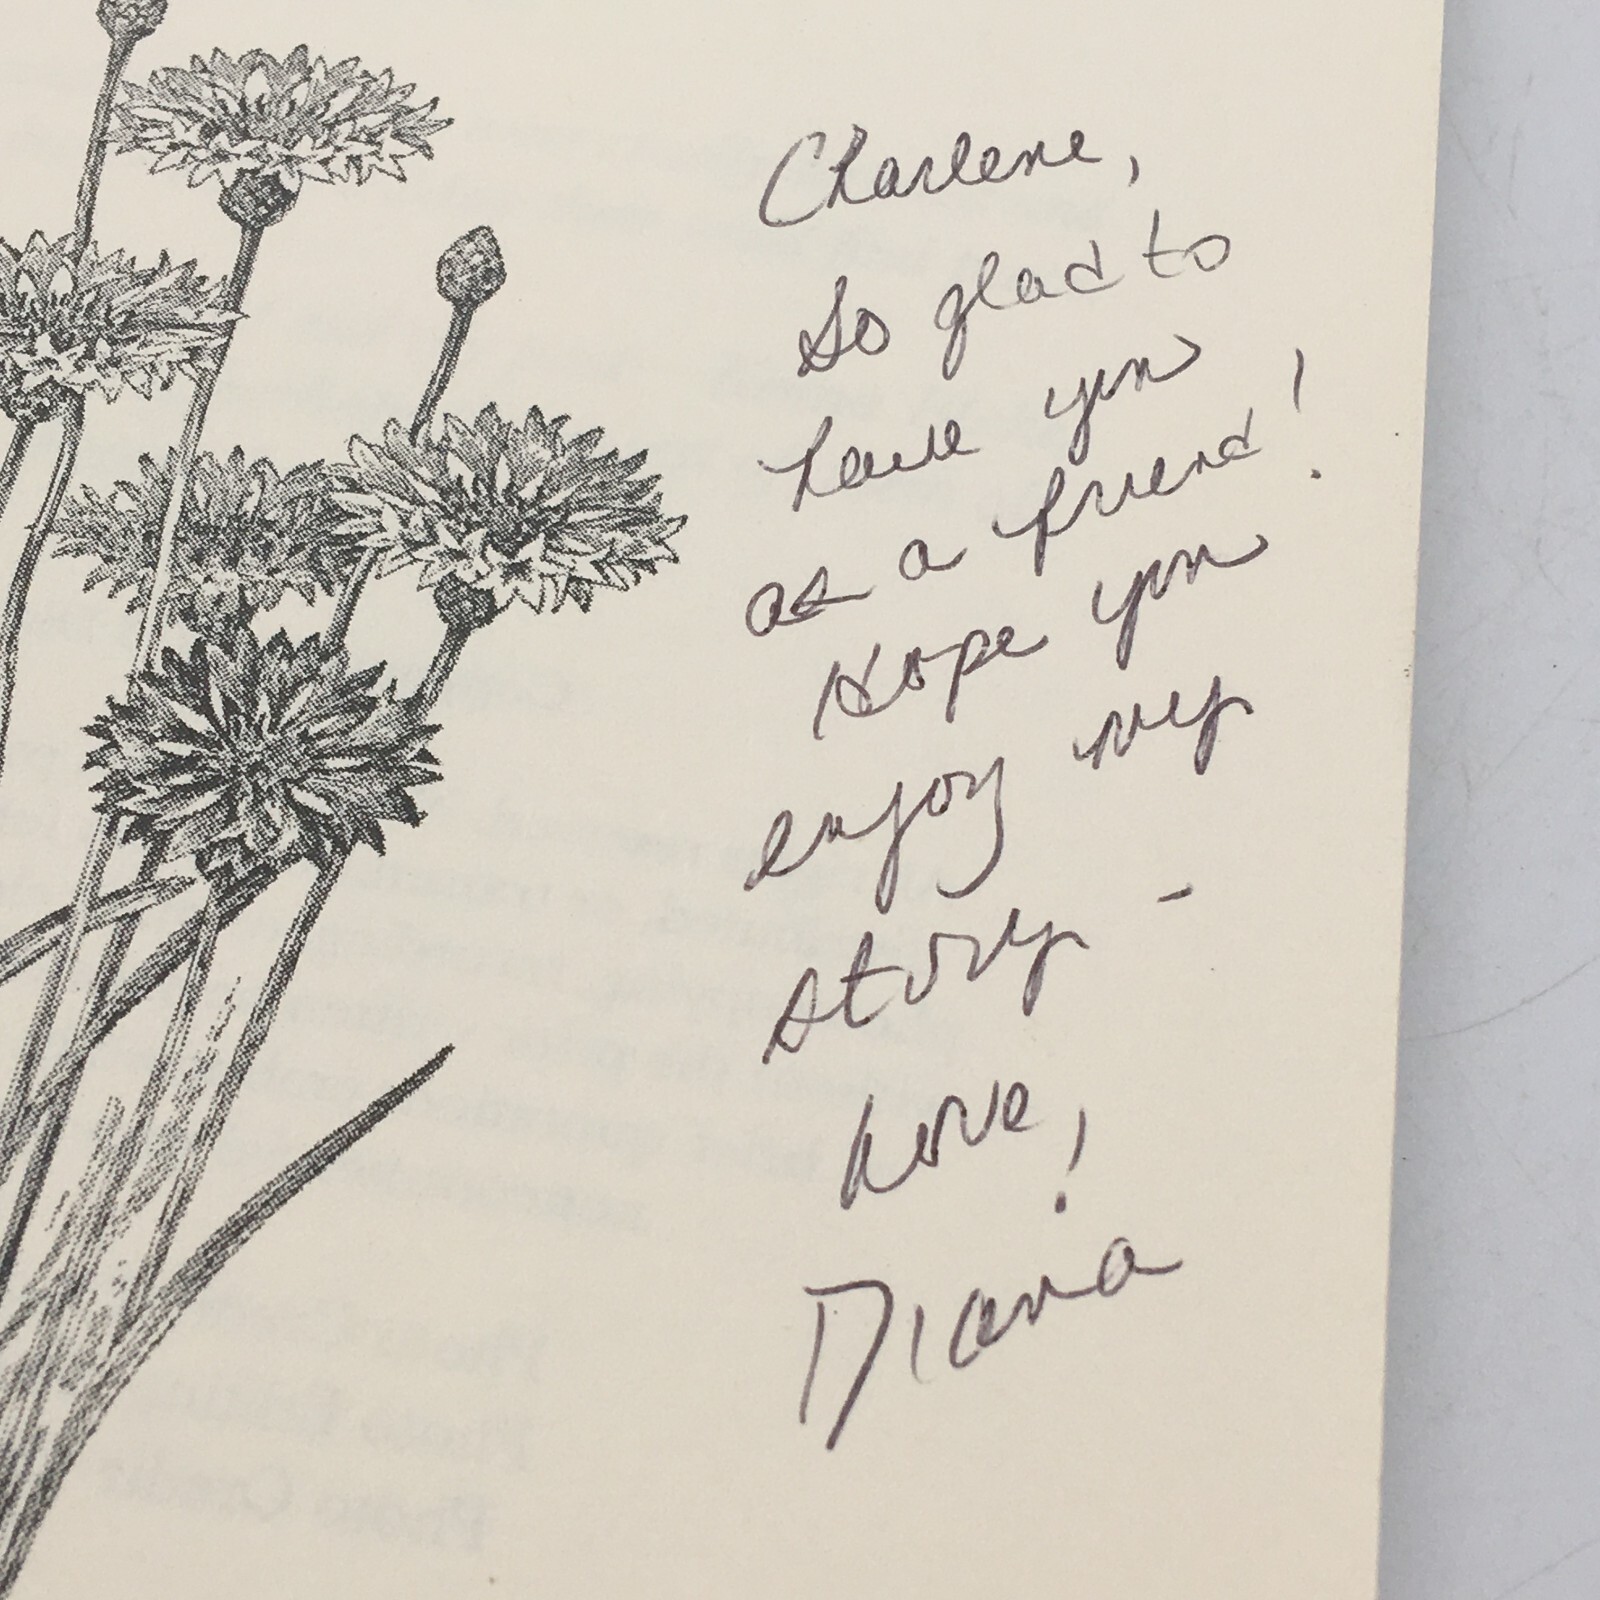 Charlene,
So glad to
have you
as a friend!
Hope you
enjoy my
story -
Love,
Diana